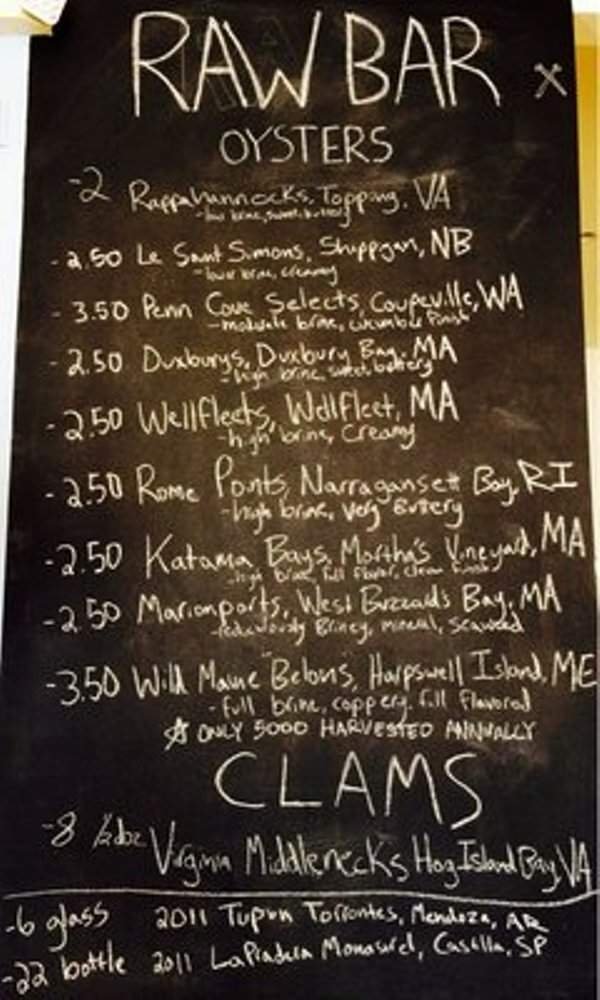 RAW BAR
OYSTERS
-2 Rappahannocks, Topping, VA
-low brine, sweet, buttery
-2.50 Le Saint Simons, Shippgan, NB
-low brine, creamy
-3.50 Penn Cove Selects, Coupeville, WA
-moderate brine, cucumber finish
-2.50 Duxburys, Duxbury Bay, MA
-high brine, sweet, buttery
-2.50 Wellfleets, Wellfleet, MA
-high brine, creamy
-2.50 Rome Points, Narragansett Bay, RI
-high brine, very buttery
-2.50 Katama Bays, Martha's Vineyard, MA
-high brine, full flavor, clean finish
-2.50 Marionports, West Buzzalds Bay, MA
-rediculously Briney, mineral, seaweed
-3.50 Wild Maine "Belons", Harpswell Island, ME
-full brine, coppery, full flavored
☆ ONLY 5000 HARVESTED ANNUALLY
CLAMS
-8 1/2 doz Virginia Middlenecks Hog Island Bay, VA
-6 glass 2011 Tupun Torrontes, Mendoza, AR
-22 bottle 2011 LaPradera Monastrel, Casella, SP